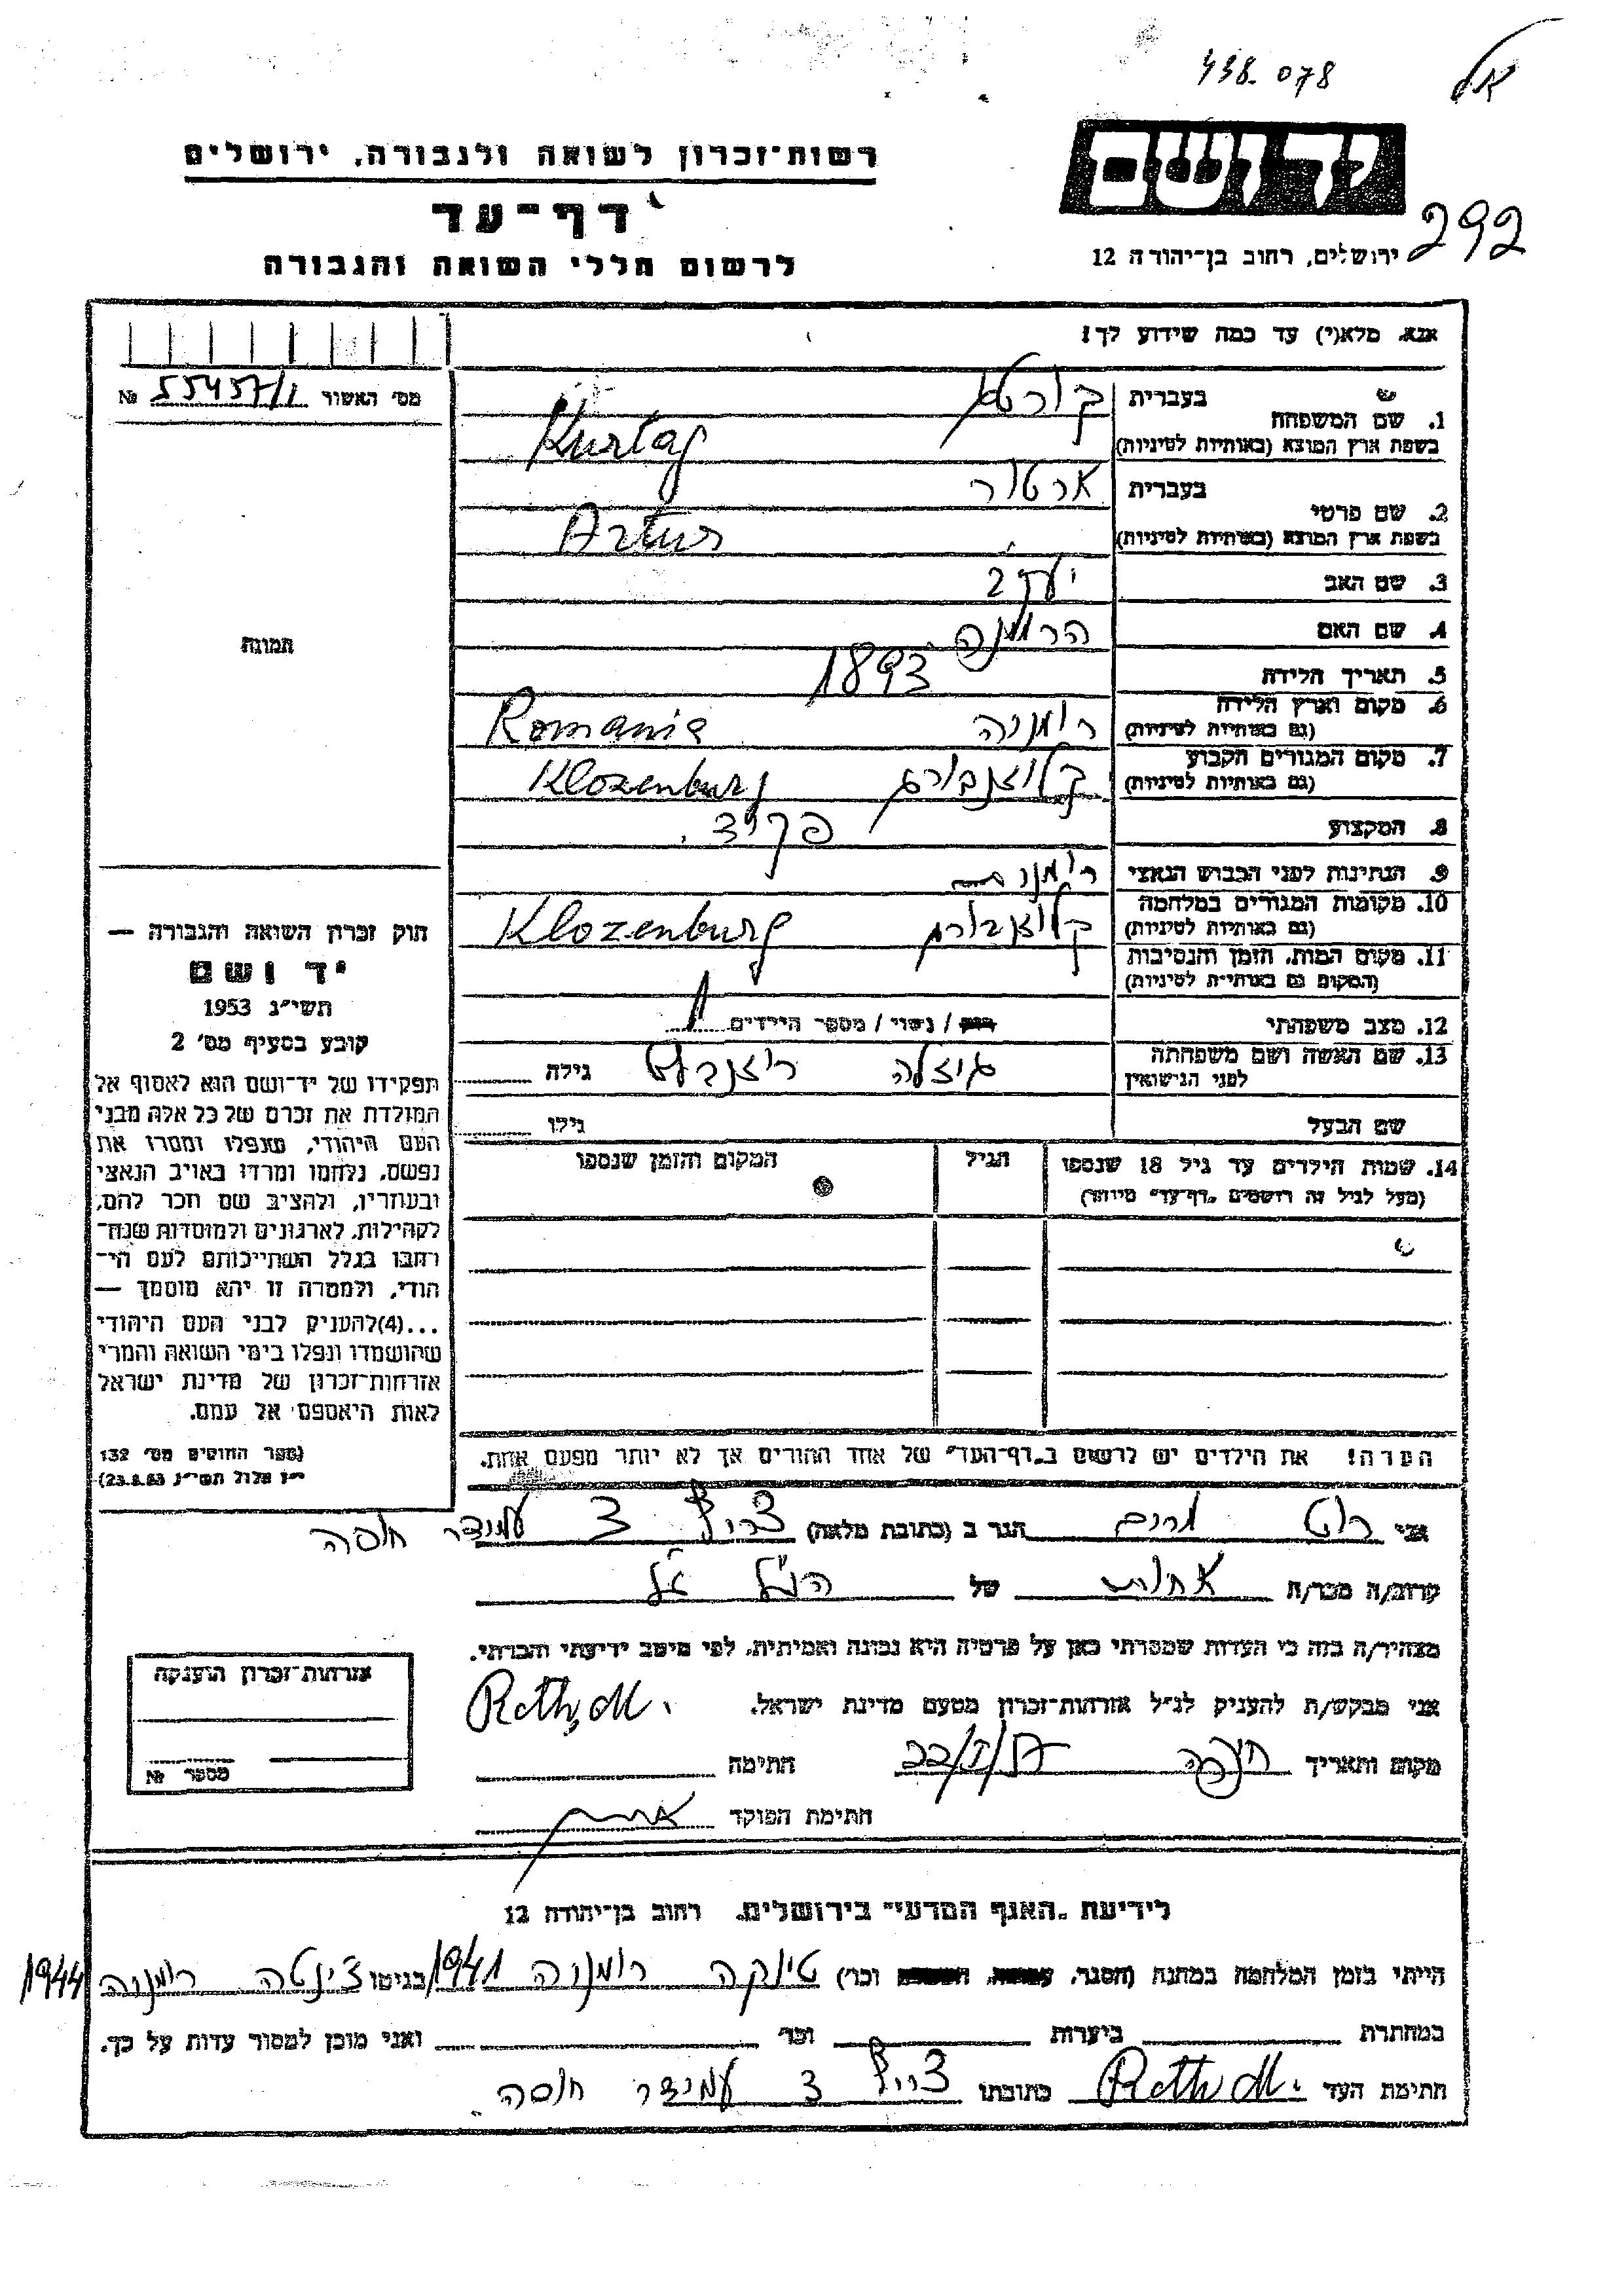 438.078
רשות־זכרון לשואה ולגבורה, ירושלים
דף־עד
לרשום חללי השואה והגבורה
יד ושם
ירושלים, רחוב בן־יהודה 12
292
אנא, מלא(י) עד כמה שידוע לך!
מס׳ האשור № 55457/1
1. שם המשפחה
בעברית קורטג
בשפת ארץ המוצא (באותיות לטיניות) Kurtag
2. שם פרטי
בעברית ארטור
בשפת ארץ המוצא (באותיות לטיניות) Artur
3. שם האב יעקב
4. שם האם הרמינה
5. תאריך הלידה 1893
6. מקום וארץ הלידה
(גם באותיות לטיניות) רומניה Romania
7. מקום המגורים הקבוע
(גם באותיות לטיניות) קלוזנבורג Klozenburg
8. המקצוע פקיד.
9. הנתינות לפני הכבוש הנאצי רומנית
10. מקומות המגורים במלחמה
(גם באותיות לטיניות) קלוזנבורג Klozenburg
11. מקום המות, הזמן והנסיבות
(המקום גם באותיות לטיניות)
12. מצב משפחתי רווק / נשוי / מספר הילדים 1
13. שם האשה ושם משפחתה
לפני הנישואין גיזלה רוזנבלט גילה
שם הבעל גילו
14. שמות הילדים עד גיל 18 שנספו הגיל המקום והזמן שנספו
(מעל לגיל זה רושמים „דף־עד״ מיוחד)
תמונה
חוק זכרון השואה והגבורה —
יד ושם
תשי״ג 1953
קובע בסעיף מס׳ 2
תפקידו של יד־ושם הוא לאסוף אל
המולדת את זכרם של כל אלה מבני
העם היהודי, שנפלו ומסרו את
נפשם, נלחמו ומרדו באויב הנאצי
ובעוזריו, ולהציב שם וזכר להם,
לקהילות, לארגונים ולמוסדות שנח־
רבו בגלל השתייכותם לעם הי־
הודי, ולמטרה זו יהא מוסמך —
...(4)להעניק לבני העם היהודי
שהושמדו ונפלו בימי השואה והמרי
אזרחות־זכרון של מדינת ישראל
לאות היאספם אל עמם.
(ספר החוקים מס׳ 132
י״ז אלול תשי״ג 23.8.53)
הערה! את הילדים יש לרשום ב„דף־העד״ של אחד ההורים אך לא יותר מפעם אחת.
אני רוט מרים הגר ב (כתובת מלאה) צריף 3 עמידר חיפה
קרוב/ה מכר/ה אחות של הנ״ל
מצהיר/ה בזה כי העדות שמסרתי כאן על פרטיה היא נכונה ואמיתית, לפי מיטב ידיעתי והכרתי.
אני מבקש/ת להעניק לנ״ל אזרחות־זכרון מטעם מדינת ישראל. Roth M.
מקום ותאריך חיפה 22/I/57 חתימה
חתימת הפוקד
אזרחות־זכרון הוענקה
מספר №
לידיעת „האגף המדעי״ בירושלים, רחוב בן־יהודה 12
הייתי בזמן המלחמה במחנה (הסגר, עבודה, השמדה וכו׳) טינקה רומניה 1941 בגיטו צ׳ינטה רומניה 1944
במחתרת ביערות וכו׳ ואני מוכן למסור עדות על כך.
חתימת העד Roth M. כתובתו צריף 3 עמידר חיפה